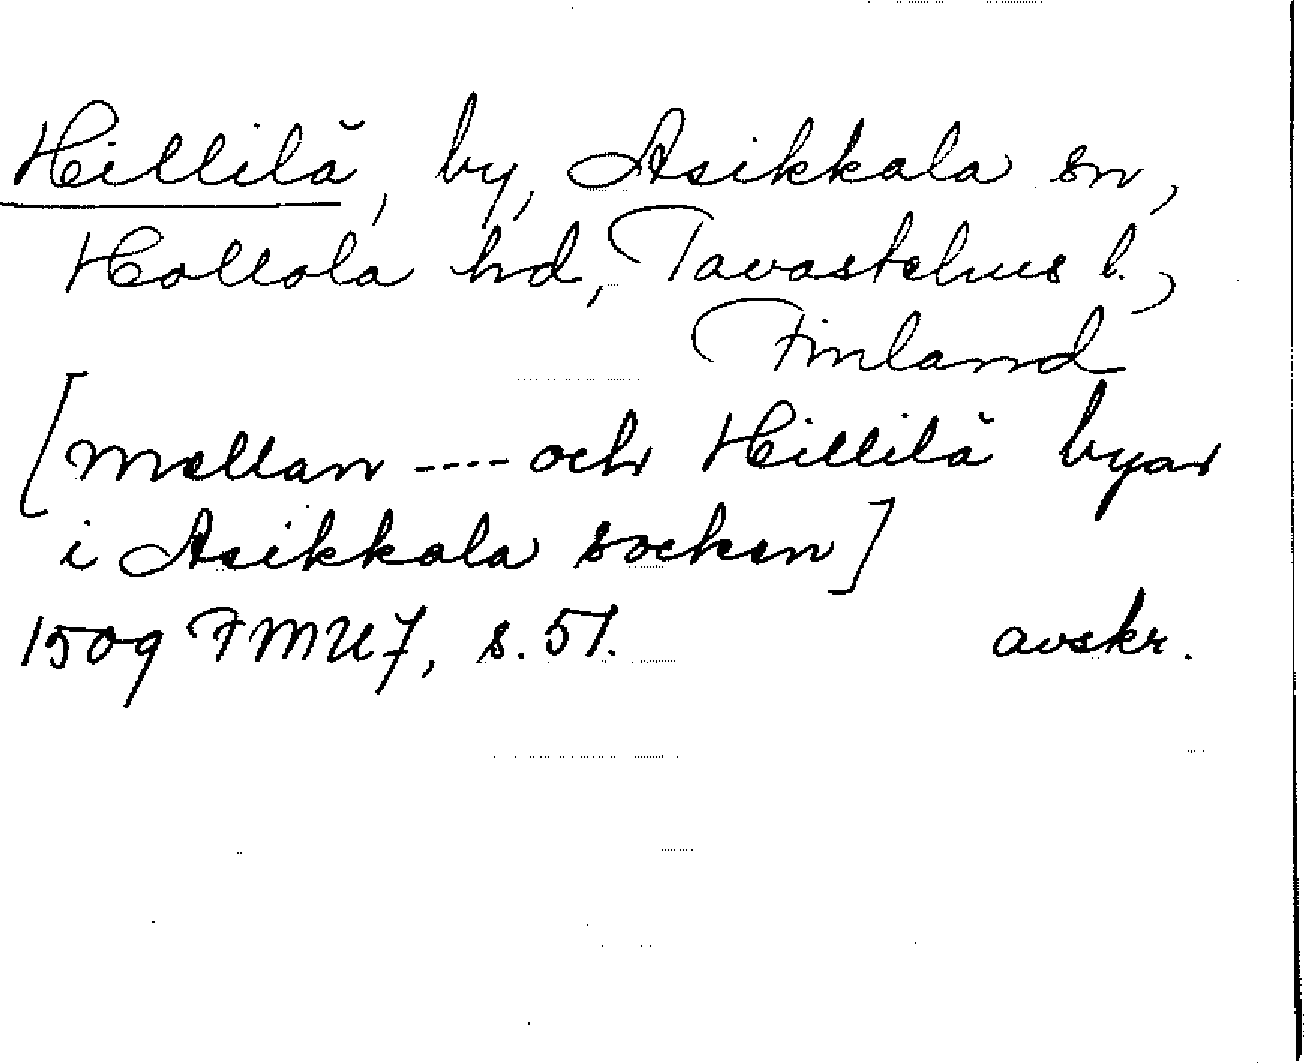 Hillilä, by, Asikkala sn,
Hollola hd, Tavastehus l.,
Finland
[mellan ---- och Hillilä byar
i Asikkala socken]
1509 FMU 7, s. 57. avskr.